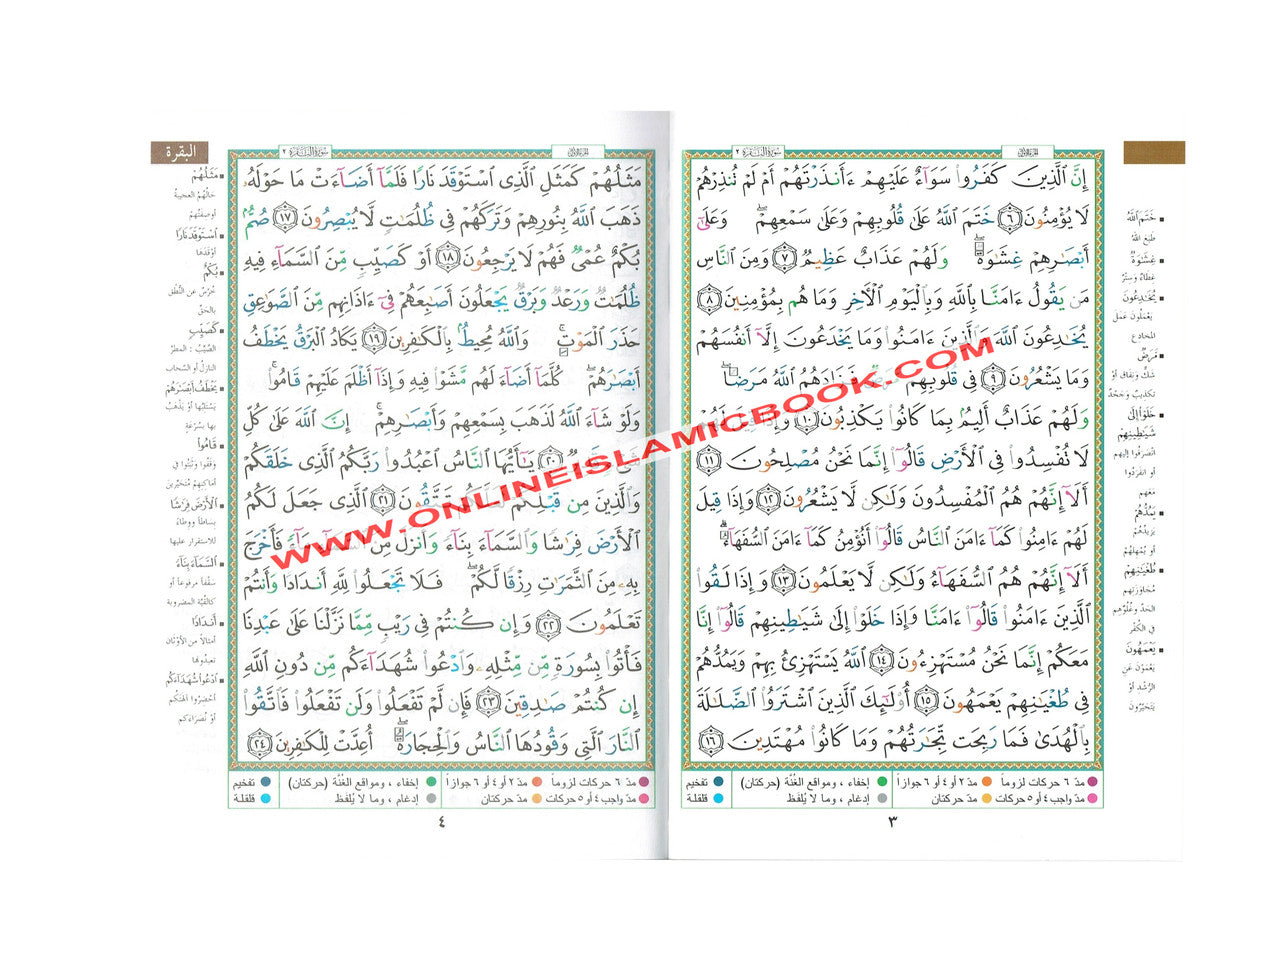 سورة البقرة ٢
الجزء الأول
إِنَّ ٱلَّذِينَ كَفَرُوا۟ سَوَآءٌ عَلَيْهِمْ ءَأَنذَرْتَهُمْ أَمْ لَمْ تُنذِرْهُمْ
لَا يُؤْمِنُونَ ٦ خَتَمَ ٱللَّهُ عَلَىٰ قُلُوبِهِمْ وَعَلَىٰ سَمْعِهِمْ ۖ وَعَلَىٰٓ
أَبْصَٰرِهِمْ غِشَٰوَةٌ ۖ وَلَهُمْ عَذَابٌ عَظِيمٌ ٧ وَمِنَ ٱلنَّاسِ
مَن يَقُولُ ءَامَنَّا بِٱللَّهِ وَبِٱلْيَوْمِ ٱلْءَاخِرِ وَمَا هُم بِمُؤْمِنِينَ ٨
يُخَٰدِعُونَ ٱللَّهَ وَٱلَّذِينَ ءَامَنُوا۟ وَمَا يَخْدَعُونَ إِلَّآ أَنفُسَهُمْ
وَمَا يَشْعُرُونَ ٩ فِى قُلُوبِهِم مَّرَضٌ فَزَادَهُمُ ٱللَّهُ مَرَضًا ۖ
وَلَهُمْ عَذَابٌ أَلِيمٌۢ بِمَا كَانُوا۟ يَكْذِبُونَ ١٠ وَإِذَا قِيلَ لَهُمْ
لَا تُفْسِدُوا۟ فِى ٱلْأَرْضِ قَالُوٓا۟ إِنَّمَا نَحْنُ مُصْلِحُونَ ١١
أَلَآ إِنَّهُمْ هُمُ ٱلْمُفْسِدُونَ وَلَٰكِن لَّا يَشْعُرُونَ ١٢ وَإِذَا قِيلَ
لَهُمْ ءَامِنُوا۟ كَمَآ ءَامَنَ ٱلنَّاسُ قَالُوٓا۟ أَنُؤْمِنُ كَمَآ ءَامَنَ ٱلسُّفَهَآءُ ۗ
أَلَآ إِنَّهُمْ هُمُ ٱلسُّفَهَآءُ وَلَٰكِن لَّا يَعْلَمُونَ ١٣ وَإِذَا لَقُوا۟
ٱلَّذِينَ ءَامَنُوا۟ قَالُوٓا۟ ءَامَنَّا وَإِذَا خَلَوْا۟ إِلَىٰ شَيَٰطِينِهِمْ قَالُوٓا۟ إِنَّا
مَعَكُمْ إِنَّمَا نَحْنُ مُسْتَهْزِءُونَ ١٤ ٱللَّهُ يَسْتَهْزِئُ بِهِمْ وَيَمُدُّهُمْ
فِى طُغْيَٰنِهِمْ يَعْمَهُونَ ١٥ أُو۟لَٰٓئِكَ ٱلَّذِينَ ٱشْتَرَوُا۟ ٱلضَّلَٰلَةَ
بِٱلْهُدَىٰ فَمَا رَبِحَت تِّجَٰرَتُهُمْ وَمَا كَانُوا۟ مُهْتَدِينَ ١٦
خَتَمَ ٱللَّهُ
طبع الله
غِشَٰوَةٌ
غطاء وستر
يُخَٰدِعُونَ
يعملون عمل
المخادع
مَرَضٌ
شك ونفاق أو
تكذيب وجحد
خَلَوْا۟ إِلَىٰ
شَيَٰطِينِهِمْ
انصرفوا إليهم
أو انفردوا
معهم
يَمُدُّهُمْ
يزيدهم
أو يمهلهم
طُغْيَٰنِهِمْ
مجاوزتهم
الحد وغلوهم
في الكفر
يَعْمَهُونَ
يعمون عن
الرشد أو
يتحيرون
مدّ ٦ حركات لزوماً مدّ ٢ أو ٤ أو ٦ جوازاً إخفاء ، ومواقع الغُنَّة (حركتان) تفخيم
مدّ واجب ٤ أو ٥ حركات مدّ حركتان إدغام ، وما لا يُلفَظ قلقلة
٣
البقرة
سورة البقرة ٢
الجزء الأول
مَثَلُهُمْ كَمَثَلِ ٱلَّذِى ٱسْتَوْقَدَ نَارًا فَلَمَّآ أَضَآءَتْ مَا حَوْلَهُۥ
ذَهَبَ ٱللَّهُ بِنُورِهِمْ وَتَرَكَهُمْ فِى ظُلُمَٰتٍ لَّا يُبْصِرُونَ ١٧ صُمٌّۢ
بُكْمٌ عُمْىٌ فَهُمْ لَا يَرْجِعُونَ ١٨ أَوْ كَصَيِّبٍ مِّنَ ٱلسَّمَآءِ فِيهِ
ظُلُمَٰتٌ وَرَعْدٌ وَبَرْقٌ يَجْعَلُونَ أَصَٰبِعَهُمْ فِىٓ ءَاذَانِهِم مِّنَ ٱلصَّوَٰعِقِ
حَذَرَ ٱلْمَوْتِ ۚ وَٱللَّهُ مُحِيطٌۢ بِٱلْكَٰفِرِينَ ١٩ يَكَادُ ٱلْبَرْقُ يَخْطَفُ
أَبْصَٰرَهُمْ ۖ كُلَّمَآ أَضَآءَ لَهُم مَّشَوْا۟ فِيهِ وَإِذَآ أَظْلَمَ عَلَيْهِمْ قَامُوا۟ ۚ
وَلَوْ شَآءَ ٱللَّهُ لَذَهَبَ بِسَمْعِهِمْ وَأَبْصَٰرِهِمْ ۚ إِنَّ ٱللَّهَ عَلَىٰ كُلِّ
شَىْءٍ ٢٠ يَٰٓأَيُّهَا ٱلنَّاسُ ٱعْبُدُوا۟ رَبَّكُمُ ٱلَّذِى خَلَقَكُمْ
وَٱلَّذِينَ مِن قَبْلِكُمْ لَعَلَّكُمْ تَتَّقُونَ ٢١ ٱلَّذِى جَعَلَ لَكُمُ
ٱلْأَرْضَ فِرَٰشًا وَٱلسَّمَآءَ بِنَآءً وَأَنزَلَ مِنَ ٱلسَّمَآءِ مَآءً فَأَخْرَجَ
بِهِۦ مِنَ ٱلثَّمَرَٰتِ رِزْقًا لَّكُمْ ۖ فَلَا تَجْعَلُوا۟ لِلَّهِ أَندَادًا وَأَنتُمْ
تَعْلَمُونَ ٢٢ وَإِن كُنتُمْ فِى رَيْبٍ مِّمَّا نَزَّلْنَا عَلَىٰ عَبْدِنَا
فَأْتُوا۟ بِسُورَةٍ مِّن مِّثْلِهِۦ وَٱدْعُوا۟ شُهَدَآءَكُم مِّن دُونِ ٱللَّهِ
إِن كُنتُمْ صَٰدِقِينَ ٢٣ فَإِن لَّمْ تَفْعَلُوا۟ وَلَن تَفْعَلُوا۟ فَٱتَّقُوا۟
ٱلنَّارَ ٱلَّتِى وَقُودُهَا ٱلنَّاسُ وَٱلْحِجَارَةُ ۖ أُعِدَّتْ لِلْكَٰفِرِينَ ٢٤
مَثَلُهُمْ
حالهم العجيبة
أو صفتهم
ٱسْتَوْقَدَ نَارًا
أوقدها
بُكْمٌ
خرس عن النطق
بالحق
كَصَيِّبٍ
الصيب : المطر
النازل أو السحاب
يَخْطَفُ أَبْصَٰرَهُمْ
يستلبها أو يذهب
بها بسرعة
قَامُوا۟
وقفوا وثبتوا في
أماكنهم متحيرين
ٱلْأَرْضَ فِرَٰشًا
بساطاً ووطاء
للاستقرار عليها
ٱلسَّمَآءَ بِنَآءً
سقفاً مرفوعاً أو
كالقبة المضروبة
أَندَادًا
أمثالاً من الأوثان
تعبدونها
ٱدْعُوا۟ شُهَدَآءَكُم
أحضروا آلهتكم
أو نصراءكم
مدّ ٦ حركات لزوماً مدّ ٢ أو ٤ أو ٦ جوازاً إخفاء ، ومواقع الغُنَّة (حركتان) تفخيم
مدّ واجب ٤ أو ٥ حركات مدّ حركتان إدغام ، وما لا يُلفَظ قلقلة
٤
WWW.ONLINEISLAMICBOOK.COM